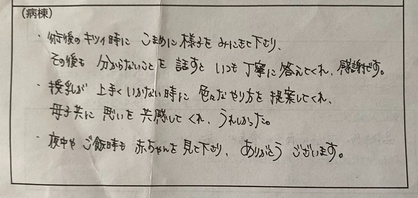 (病棟)
・術後のキツイ時に こまめに様子をみにきて下り、
その後も 分からないことを 話すと いつも丁寧に 答えてくれ、感謝です。
・授乳が 上手く いかない時に 色々なやり方を 提案してくれ、
母子共に 思いを 共感して くれ、うれしかった。
・夜中や ご飯時も 赤ちゃんを 見て下り、ありがとう ございます。